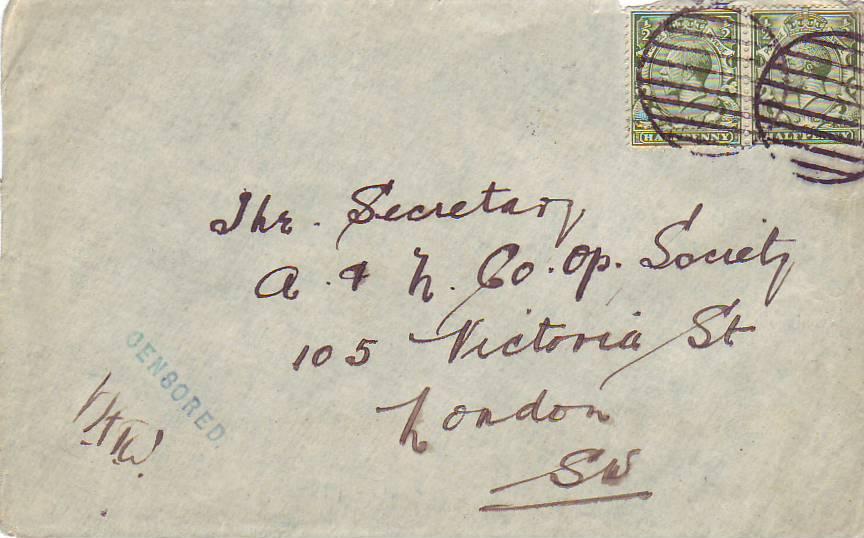 1/2 1/2
HALFPENNY
1/2
HALFPENNY
The. Secretary
A. & N. Co. Op. Society
105 Victoria St
London
SW
CENSORED.